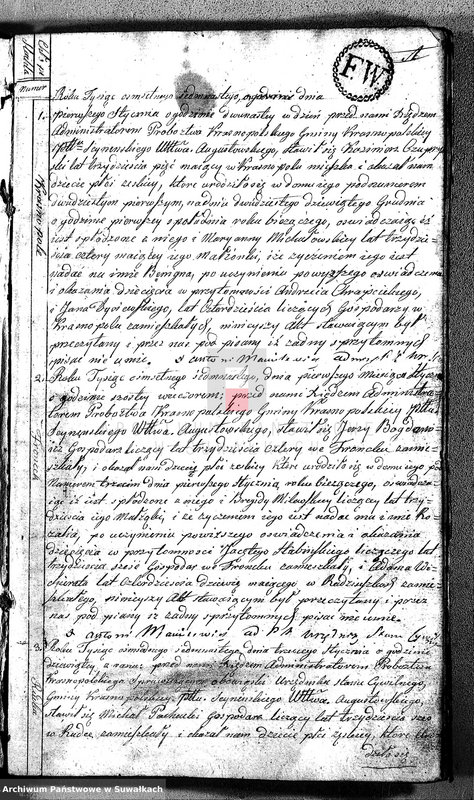 Numer
FW
1.
Krasnopole
Roku Tysiąc ośmsetnego siedmnastego, dnia
pierwszego Stycznia o godzinie dwunastey w dzień przed nami Xiędzem
Administratorem Probostwa Krasnopolskiego Gminy Krasnopolskiey
Pttu Seynenskiego Wttwa. Augustowskiego, stawił się Kazimierz
lat trzydzieścia pięć maiący w Krasnopolu mieszka i okazał nam
dziecie płci zeskiey, które urodziło się w domu iego pod numerem
dwudziestym pierwszym, na dniu dwudziestego dziewiątego Grudnia
o godzinie pierwszey s południa roku bieżącego, oswiadczaiąc iż
iest spłodzone z niego i Maryanny Michałowskiey lat trzydzie-
scia cztery maiącey iego Małżonki, i że zyczeniem iego iest
nadac mu imie Benigna, po uczynieniu powyższego oswiadczenia
i okazania dziecięcia w przytomności Andrzeia Chrapcickiego,
i Jana lat czterdzieścia liczących Gospodarzy w
Krasnopolu zamieszkałych, ninieyszy Akt stawaiącym był
przeczytany i przez nas podpisany iż żadny s przytomnych
pisac nie umie.
2.
Roku Tysiąc ośmsetnego siedmnastego, dnia pierwszego Miesiąca Stycznia
o godzinie szostey wieczorem; przed nami Xiędzem Administra-
torem Probostwa Krasnopolskiego Gminy Krasnopolskiey Pttu
Seynenskiego Wttwa. Augustowskiego, stawił się Jerzy Bogdano-
icz Gospodarz liczący lat trzydzieścia cztery we Froncku zamie-
szkały, i okazał nam dziecię płci zeskiey które urodziło się w domu iego pod
Numerem trzecim dnia pierwszego Stycznia roku bieżącego, oswiadcza-
iąc iż iest spłodzone z niego i Brygidy Milewskiey liczącey lat trzy-
dzieścia iego Małżonki, i że zyczeniem iego iest nadac mu imie Ro-
zalia, po uczynieniu powyższego oswiadczenia i okazania
dziecięcia w przytomności Jacętego Stabinskiego liczącego lat
trzydzieścia sześć Gospodarz we Froncku zamieszkały, i Adama
lat Czterdzieścia dziewięć maiącego w Rudziszkach zamie-
szkałego, ninieyszy Akt stawaiącym był przeczytany i przez
nas podpisany iż żadny s przytomnych pisac nie umie.
3.
Roku Tysiąc ośmsetnego siedmnastego, dnia trzeciego Stycznia o godzinie
dziewiątey z rana przed nami Xiędzem Administratorem Probostwa
Krasnopolskiego Sprawuiącym obowiązki Urzędnika Stanu Cywilnego,
Gminy Krasnopolskiey Pttu. Seynenskiego Wttwa. Augustowskiego,
stawił się Michał Gospodarz liczący lat trzydzieścia sześć
w Rudce zamieszkały i okazał nam dziecię płci zeskiey, które uro-
dziło się
Archiwum Państwowe w Suwałkach